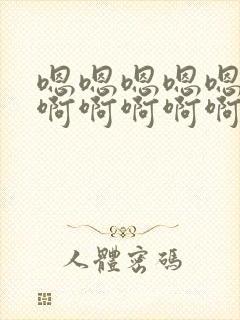 嗯嗯嗯嗯嗯
啊啊啊啊啊
人體密碼